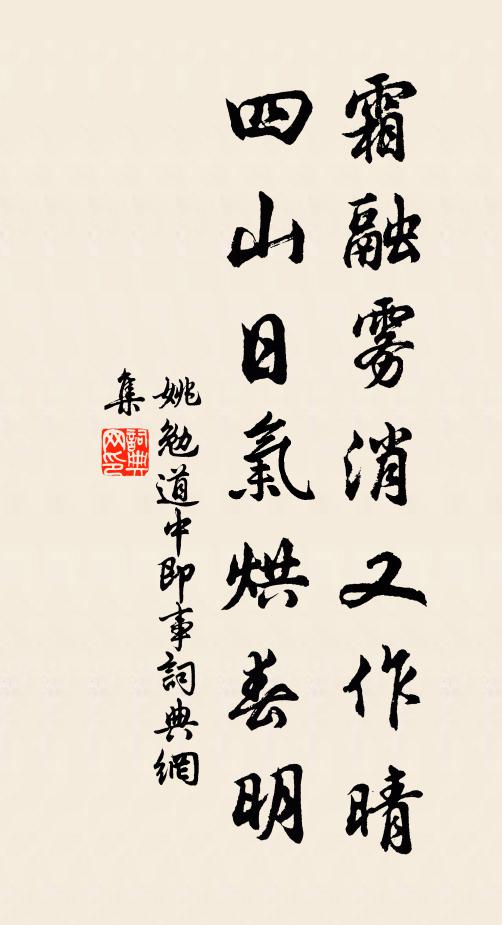 霜融雾消又作晴
四山日氣烘春明
姚勉道中即事詞典網
集
詞典网印